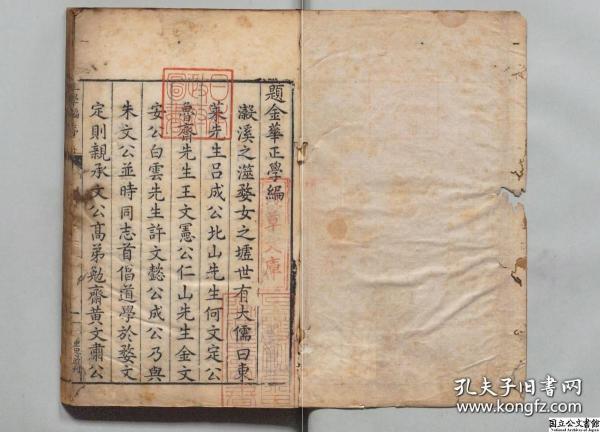 題金華正學編
瀫溪之澨婺女之墟世有大儒曰東
萊先生呂成公北山先生何文定公
魯齋先生王文憲公仁山先生金文
安公白雲先生許文懿公成公乃與
朱文公並時同志首倡道學於婺文
定則親承文公高弟勉齋黃文肅公
日本
政府
圖書
孔夫子旧书网
www.kongfz.com
国立公文書館
National Archives of Japan